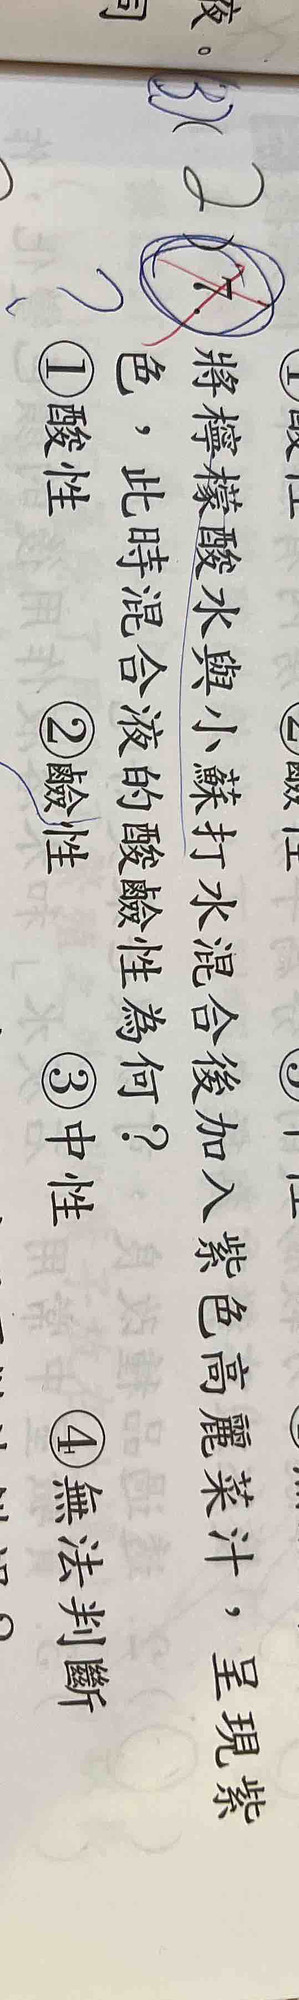 夜。
(3)( 2 )7. 將檸檬酸水與小蘇打水混合後加入紫色高麗菜汁，呈現紫
色，此時混合液的酸鹼性為何？
?
①酸性 ②鹼性 ③中性 ④無法判斷